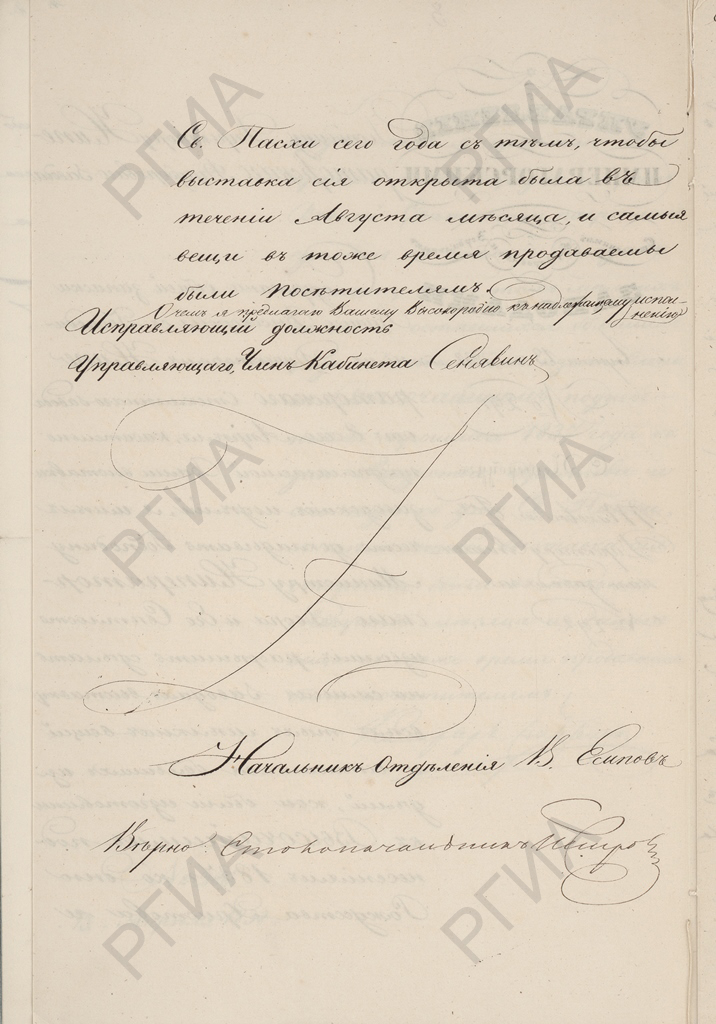 Св. Пасхи сего года съ тѣмъ, чтобы
выставка сія открыта была въ
теченіи Августа мѣсяца, и самыя
вещи въ тоже время продаваемы
были посѣтителямъ.
О чемъ я предлагаю Вашему Высокородію къ надлежащему испол-
ненію
Исправляющій должность
Управляющаго, Членъ Кабинета Сенявинъ
Начальникъ Отдѣленія В. Есиповъ
Вѣрно: Столоначальникъ
РГИА
РГИА
РГИА
РГИА
РГИА
РГИА